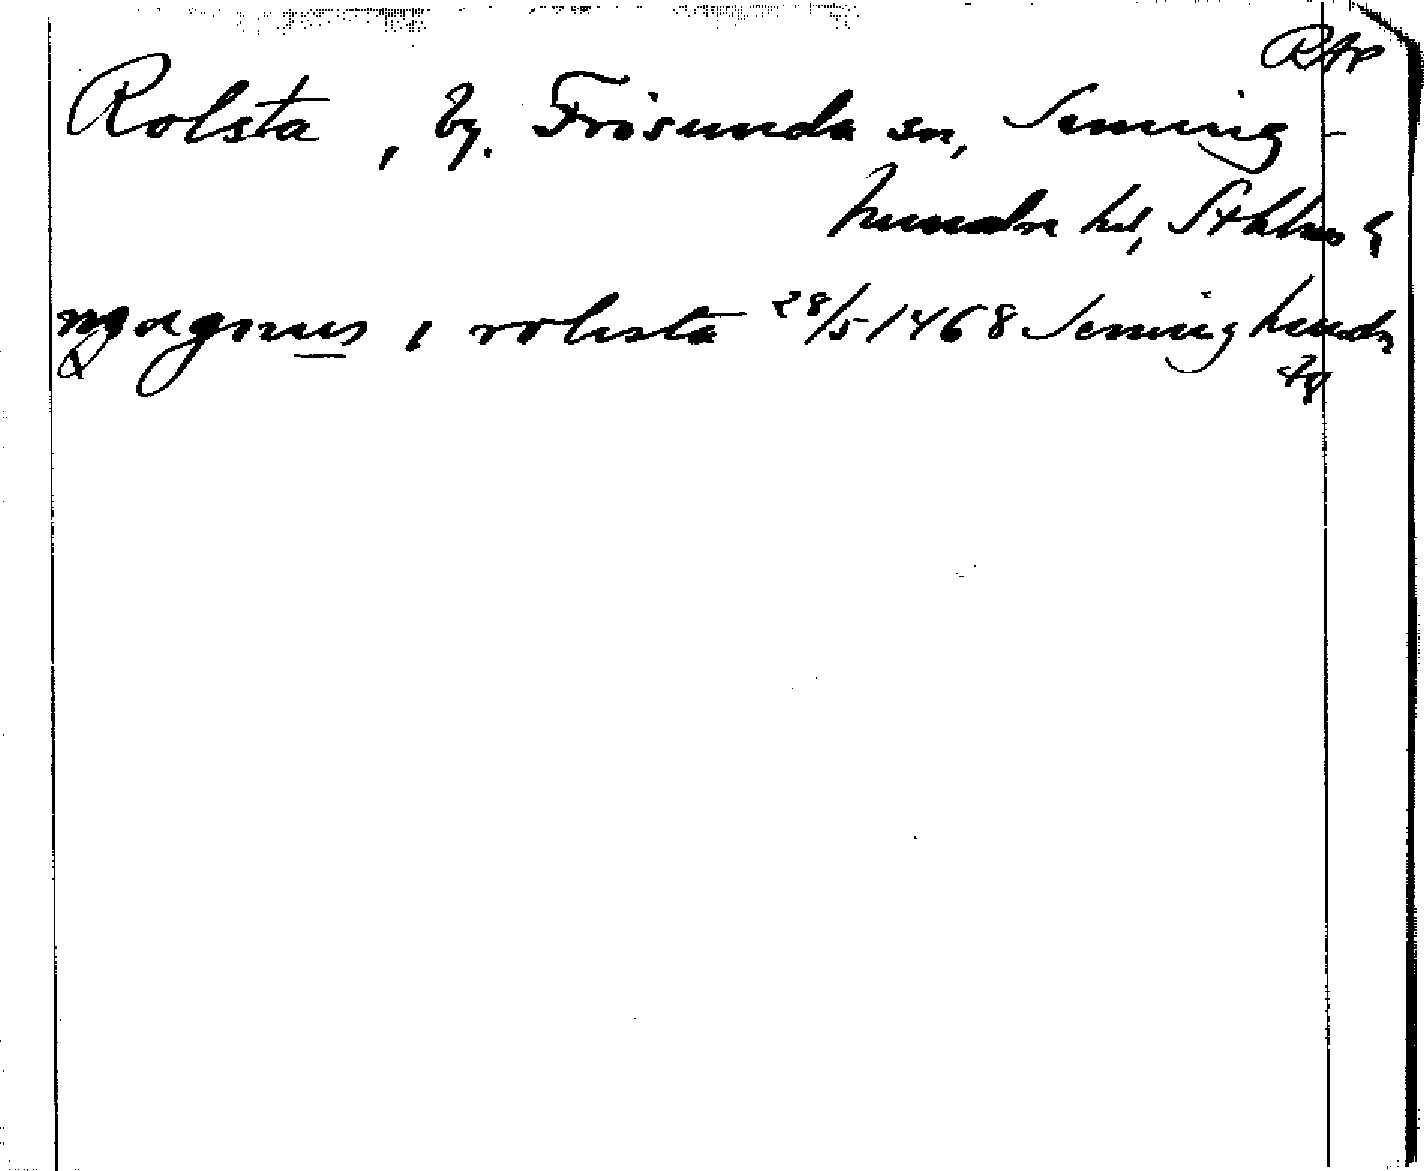 RAp
Rolsta, by. Frösunda sn, Seming-
hundra hd, Sthlms l
magnus i rolsta 28/5 1468 Seminghundr